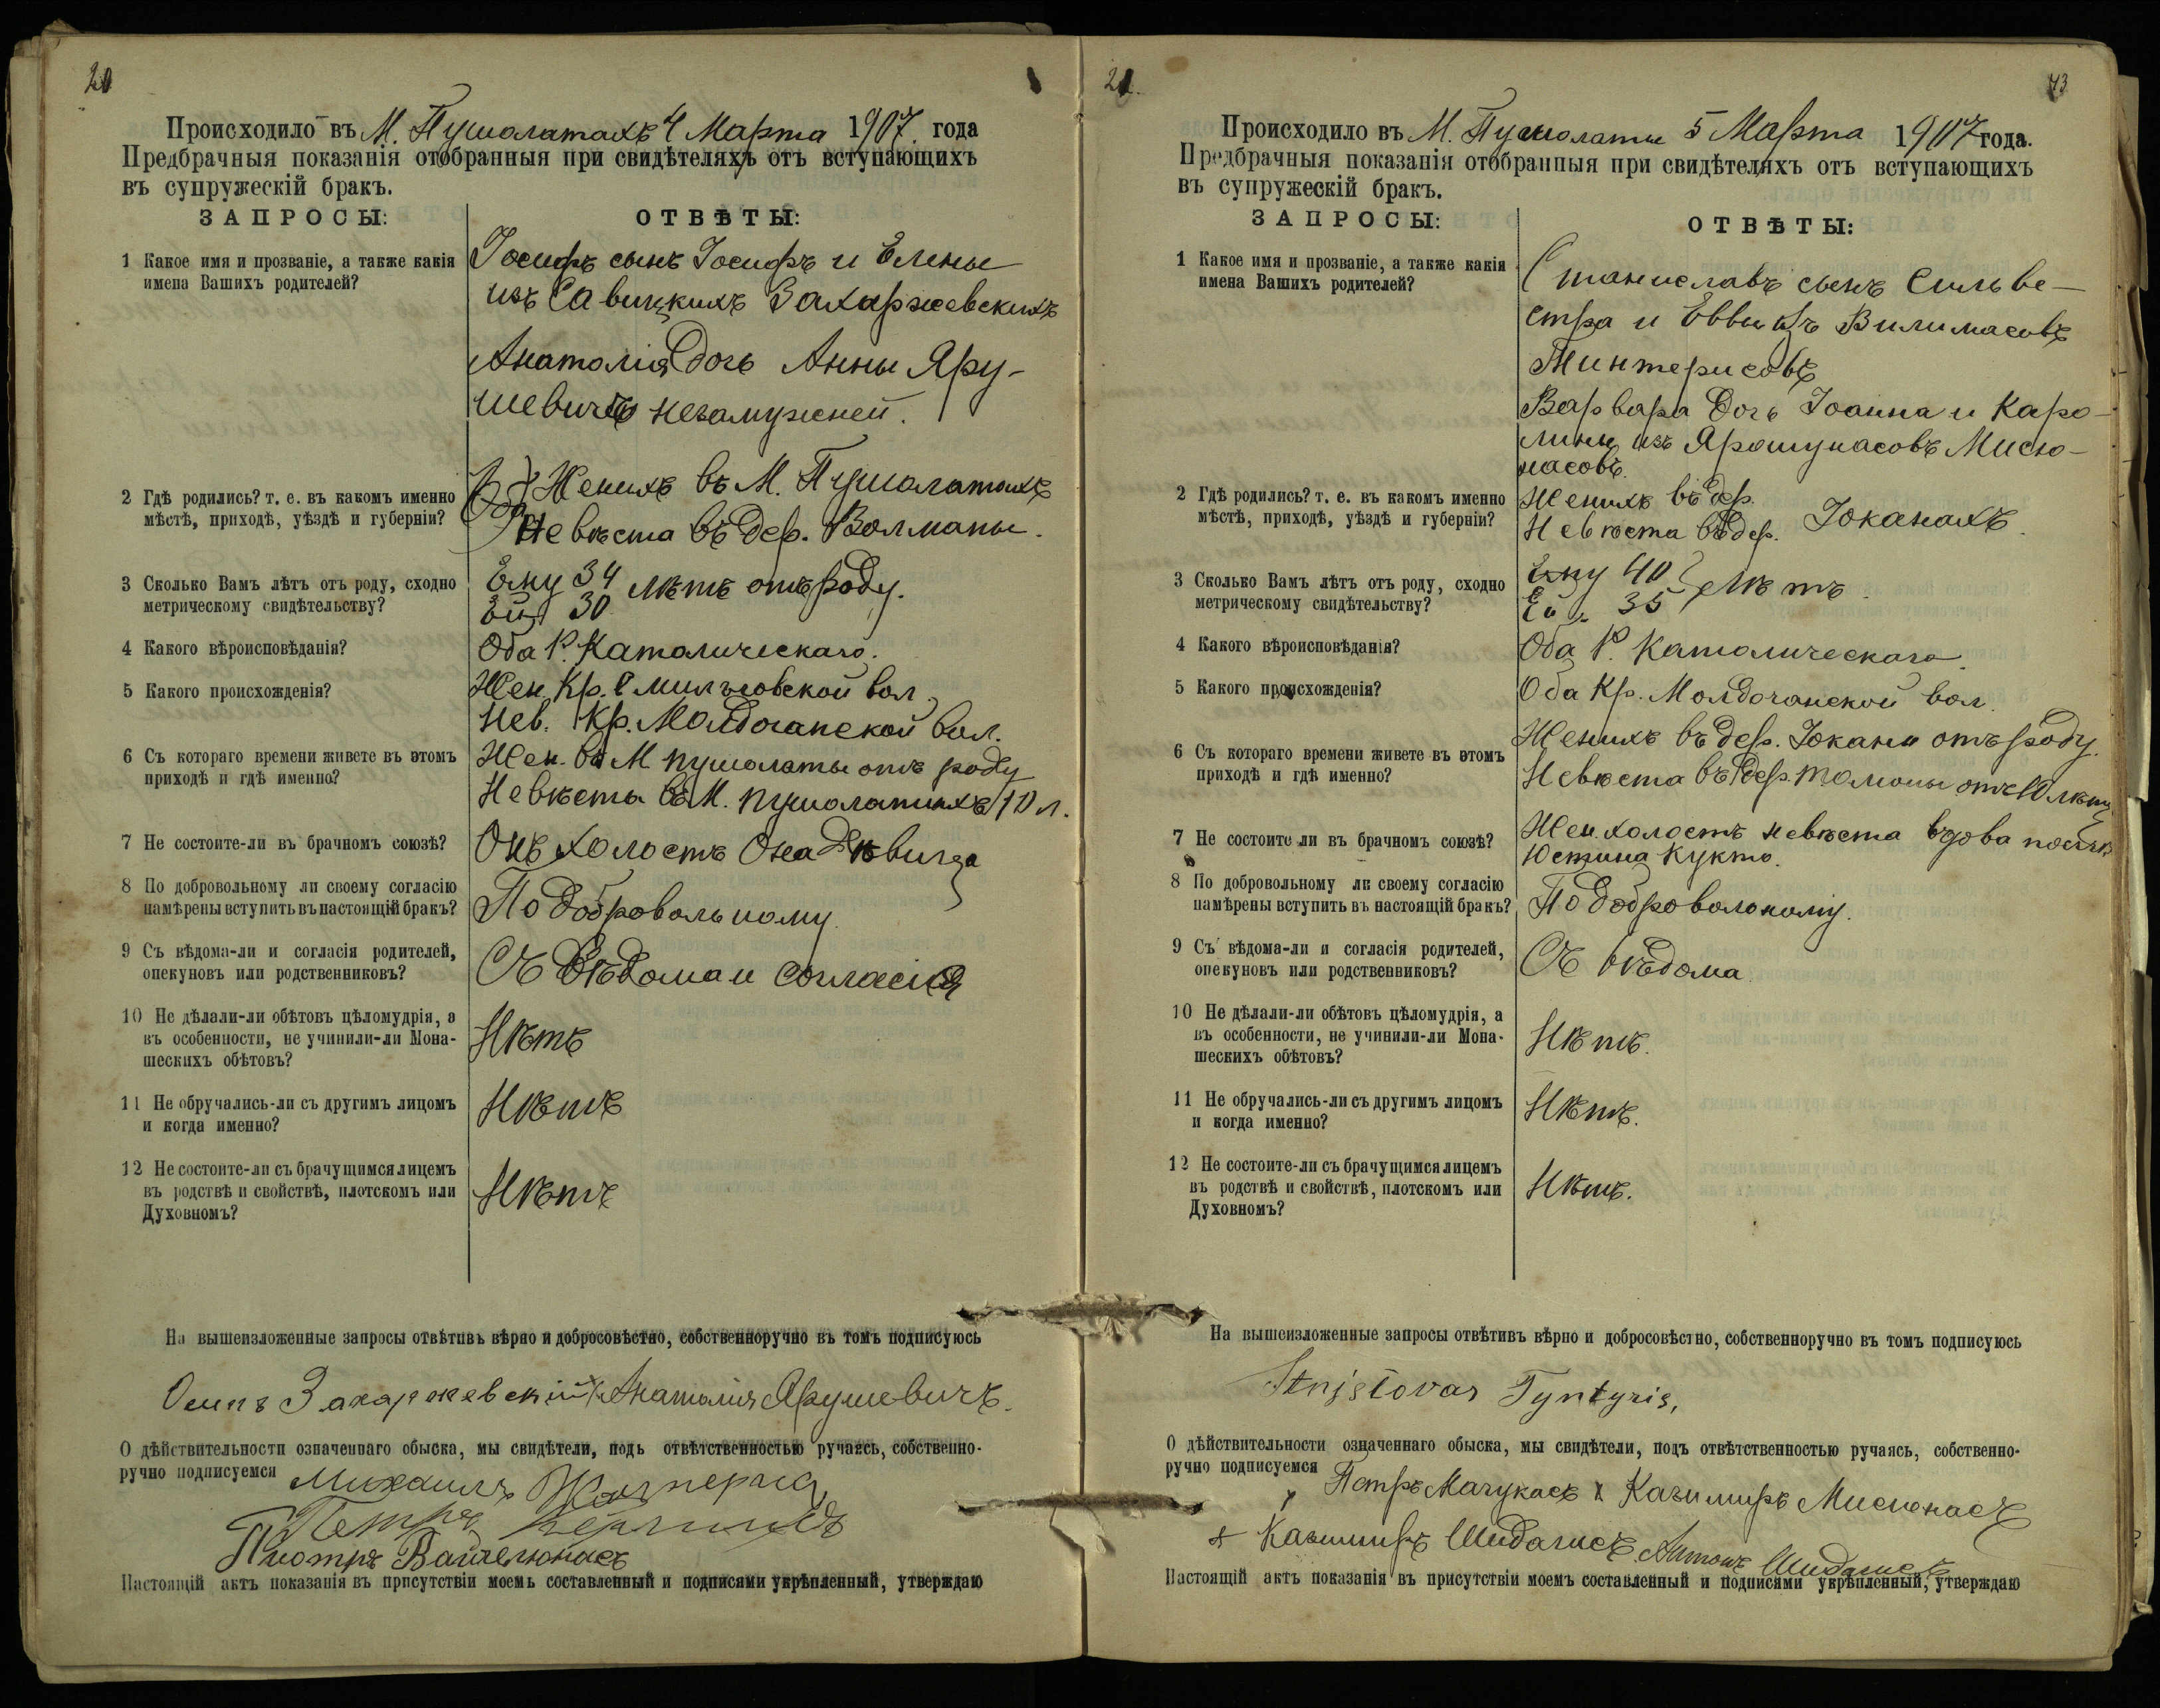 20
Происходило въ М. Пушолатахъ 4 Марта 1907 года
Предбрачныя показанія отобранныя при свидѣтеляхъ отъ вступающихъ
въ супружескій бракъ.
ЗАПРОСЫ:
ОТВѢТЫ:
1 Какое имя и прозваніе, а также какія
имена Вашихъ родителей?
Іосифъ сынъ Іосифъ и Елены
изъ Савицкихъ Захаржевскихъ
Анатолія дочь Анны Яру-
шевичъ незамужней.
2 Гдѣ родились? т. е. въ какомъ именно
мѣстѣ, приходѣ, уѣздѣ и губерніи?
Женихъ въ М. Пушолатахъ
Невѣста въ дер. Волманы.
3 Сколько Вамъ лѣтъ отъ роду, сходно
метрическому свидѣтельству?
Ему 34 лѣтъ отъ роду.
Ей 30
4 Какого вѣроисповѣданія?
Оба Р. Католическаго.
5 Какого происхожденія?
Жен. Кр. вол.
Нев. Кр. Молдочанской вол.
6 Съ котораго времени живете въ этомъ
приходѣ и гдѣ именно?
Жен. въ М пушолаты отъ роду
Невѣста въ М. пушолатахъ 10 л.
7 Не состоите-ли въ брачномъ союзѣ?
Онъ холостъ Она дѣвица
8 По добровольному ли своему согласію
намѣрены вступить въ настоящій бракъ?
По добровольному.
9 Съ вѣдома-ли и согласія родителей,
опекуновъ или родственниковъ?
Съ вѣдома и согласія
10 Не дѣлали-ли обѣтовъ цѣломудрія, а
въ особенности, не учинили-ли Мона-
шескихъ обѣтовъ?
Нѣтъ
11 Не обручались-ли съ другимъ лицомъ
и когда именно?
Нѣтъ
12 Не состоите-ли съ брачущимся лицемъ
въ родствѣ и свойствѣ, плотскомъ или
Духовномъ?
Нѣтъ
На вышеизложенные запросы отвѣтивъ вѣрно и добросовѣстно, собственноручно въ томъ подписуюсь
Осипъ Захаржевскій Анатолія Ярушевичъ.
О дѣйствительности означеннаго обыска, мы свидѣтели, подъ отвѣтственностью ручаясь, собственно-
ручно подписуемся
Михаилъ
Петръ
Піотръ Вайчелюнасъ
Настоящій актъ показанія въ присутствіи моемъ составленный и подписями укрѣпленный, утверждаю
21.
73
Происходило въ М. Пушолаты 5 Марта 1907 года.
Предбрачныя показанія отобранныя при свидѣтеляхъ отъ вступающихъ
въ супружескій бракъ.
ЗАПРОСЫ:
ОТВѢТЫ:
1 Какое имя и прозваніе, а также какія
имена Вашихъ родителей?
Станиславъ сынъ Сильве-
стра и Еввы изъ Вилимасовъ
Тинтерисовъ
Варвара дочь Іоанна и Каро-
лины изъ Ярошунасовъ Мисю-
насовъ.
2 Гдѣ родились? т. е. въ какомъ именно
мѣстѣ, приходѣ, уѣздѣ и губерніи?
Женихъ въ дер.
Невѣста въ дер. Іоканахъ.
3 Сколько Вамъ лѣтъ отъ роду, сходно
метрическому свидѣтельству?
Ему 40 лѣтъ.
Ей " 35
4 Какого вѣроисповѣданія?
Оба Р. Католическаго.
5 Какого происхожденія?
Оба Кр. Молдочанской вол.
6 Съ котораго времени живете въ этомъ
приходѣ и гдѣ именно?
Женихъ въ дер. Іоканы отъ роду.
Невѣста въ дер. отъ 10 лѣтъ
7 Не состоите ли въ брачномъ союзѣ?
Жен. холостъ невѣста вдова послѣ
Юстина Кукто.
8 По добровольному ли своему согласію
намѣрены вступить въ настоящій бракъ?
По добровольному.
9 Съ вѣдома-ли и согласія родителей,
опекуновъ или родственниковъ?
Съ вѣдома
10 Не дѣлали-ли обѣтовъ цѣломудрія, а
въ особенности, не учинили-ли Мона-
шескихъ обѣтовъ?
Нѣтъ.
11 Не обручались-ли съ другимъ лицомъ
и когда именно?
Нѣтъ.
12 Не состоите-ли съ брачущимся лицемъ
въ родствѣ и свойствѣ, плотскомъ или
Духовномъ?
Нѣтъ.
На вышеизложенные запросы отвѣтивъ вѣрно и добросовѣстно, собственноручно въ томъ подписуюсь
Stnjslovas Tyntyris,
О дѣйствительности означеннаго обыска, мы свидѣтели, подъ отвѣтственностью ручаясь, собственно-
ручно подписуемся
Петръ Мачукасъ х Казимиръ Мисюнасъ
х Казимиръ Шидагисъ Антонъ Шидагисъ
Настоящій актъ показанія въ присутствіи моемъ составленный и подписями укрѣпленный, утверждаю